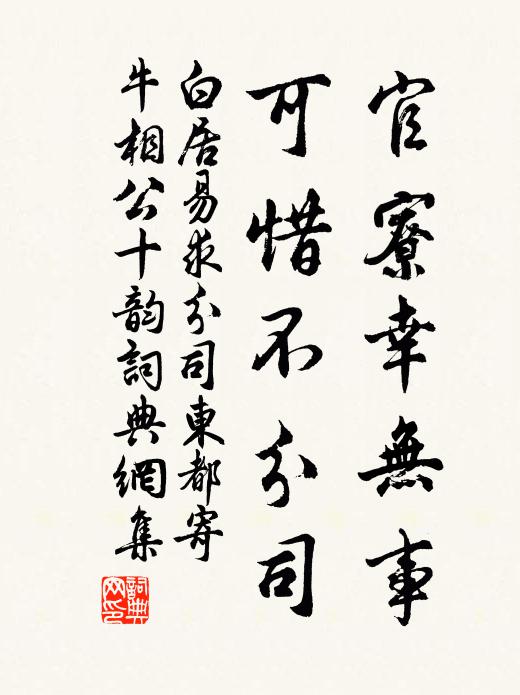 官寮幸無事
可惜不分司
白居易求分司東都寄
牛相公十韵詞典網集
詞典
网印